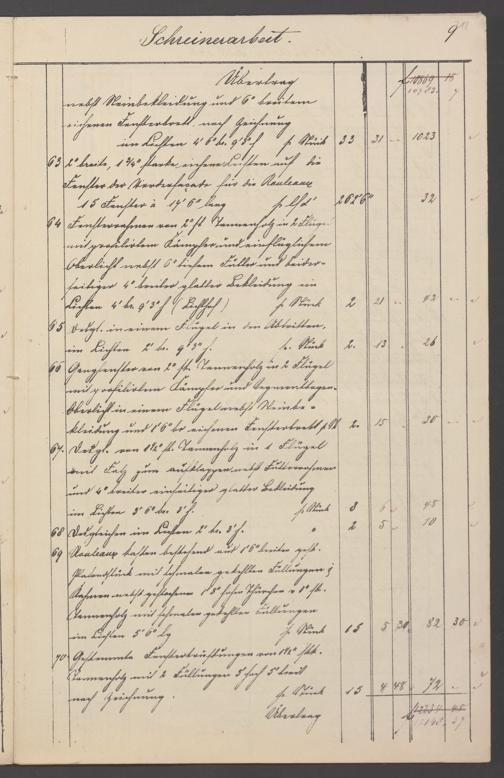 9
Schreinerarbeit.
Übertrag
nebst Steinbekleidung und 6" breitem
eichenen Fensterbrett, nach Zeichnung
im Lichten 4' 6" br. 9' 3" h p. Stück 33 31 — 1023
63 2" breite, 1 3/4" starke, eichene Leisten auf die
Fenster der Vorderfaçade für die Rouleaux
15 Fenster à 17' 6" lang p. lfd' 262' 6" 32
64 Fensterrahmen von 2" st Tannenholz in 2 Flügel
mit profilirtem Kämpfer und einflüglichem
Oberlicht nebst 6" tiefem Futter und beider-
seitiger 4" breiter glatter Bekleidung im
Lichten 4' br. 9' 3" h (Lichthof) p. Stück 2 21 — 42
65 Desgl. in einem Flügel in den Abtritten,
im Lichten 2' br. 9' 3" h. p. Stück 2. 13 . 26
66 Gangfenster von 2" st. Tannenholz in 2 Flügel
mit profilirtem Kämpfer und
Oberlicht in einem Flügel nebst Steinbe-
kleidung und 1' 6" br eichenen Fensterbrett p. St 2. 15 — 30
67. Desgl. von 1 1/2" st. Tannenholz in 1 Flügel
mit Falz zum aufklappen, nebst Futterrahmen
und 4" breiter einseitiger glatter Bekleidung
im Lichten 3' 6" br. 3' h. p. Stück 3 45
68 Desgleichen im Lichten 2' br. 3' h. " 2 5 10
69 Rouleaux kasten bestehend aus 1' 6" breiten gest.
mit schmalen gekehlten Füllungen &
Rahmen nebst
Tannenholz mit schmalen gekehlten Füllungen
im Lichten 5' 6" lg p. Stück 15 5 30 82 30
70 Gestemmte Fensterbrüstungen von 1 1/2" stk.
Tannenholz mit 2 Füllungen 3' hoch 5' breit
nach Zeichnung. p. Stück 15 4 48 72
Übertrag